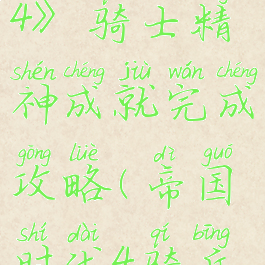 4》 骑士精
shén chéng jiù wán chéng
神成就完成
gōng lüè dì guó
攻略(帝国
shí dài qí bīng
时代4骑兵